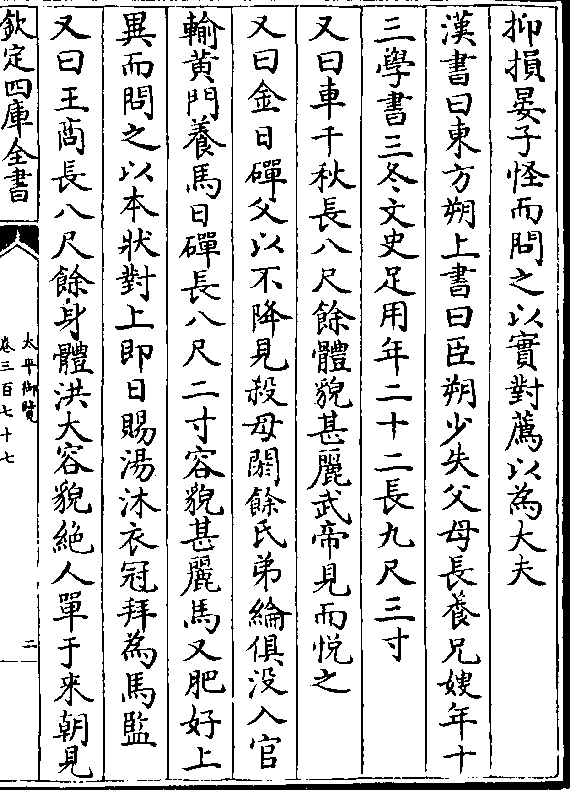 抑損晏子怪而問之以實對薦以為大夫
漢書曰東方朔上書曰臣朔少失父母長養兄嫂年十
三學書三冬文史足用年二十二長九尺三寸
又曰車千秋長八尺餘體貌甚麗武帝見而悅之
又曰金日磾父以不降見殺母閼餘氏弟綸俱没入官
輸黃門養馬日磾長八尺二寸容貌甚麗馬又肥好上
異而問之以本狀對上即日賜湯沐衣冠拜為馬監
又曰王商長八尺餘身體洪大容貌絶人單于來朝見
欽定四庫全書
太平御覽
卷三百七十七
二